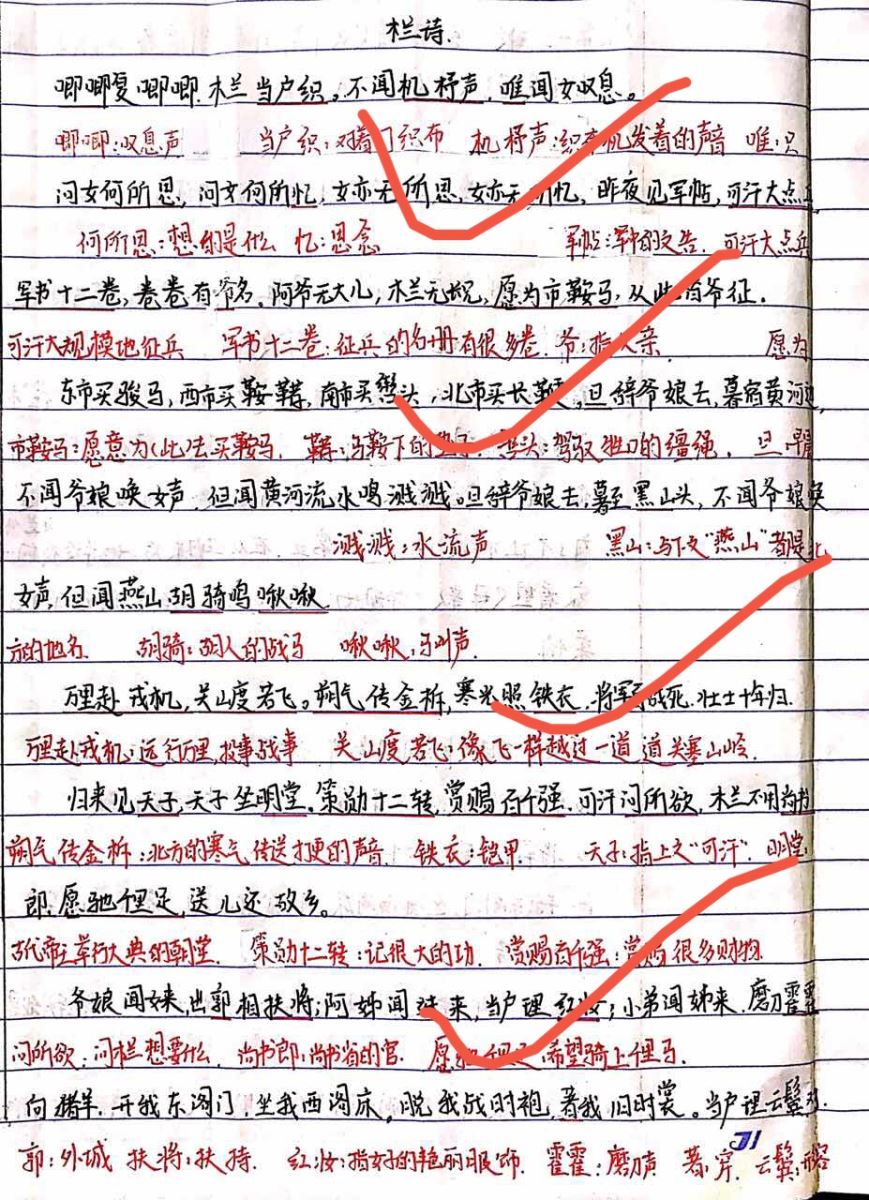 木兰诗.
唧唧复唧唧.木兰当户织。不闻机杼声，唯闻女叹息。
唧唧:叹息声 当户织:对着门织布 机杼声:织布机发着的声音 唯:只
问女何所思，问女何所忆，女亦无所思，女亦无所忆，昨夜见军帖，可汗大点兵
何所思:想的是什么 忆:思念 军帖:军中的文告. 可汗大点兵
军书十二卷，卷卷有爷名.阿爷无大儿，木兰无长兄，愿为市鞍马，从此替爷征.
可汗大规模地征兵 军书十二卷:征兵的名册有很多卷. 爷:指父亲 愿为
东市买骏马，西市买鞍鞯，南市买辔头，北市买长鞭，旦辞爷娘去，暮宿黄河边，
市鞍马:愿意为(此)去买鞍马. 鞯:马鞍下的垫子. 辔头:驾驭牲口的缰绳. 旦:早晨
不闻爷娘唤女声，但闻黄河流水鸣溅溅.旦辞爷娘去，暮至黑山头，不闻爷娘唤
溅溅:水流声 黑山:与下文“燕山”都是北
女声，但闻燕山胡骑鸣啾啾.
方的地名. 胡骑:胡人的战马 啾啾:马叫声.
万里赴戎机，关山度若飞。朔气传金柝，寒光照铁衣.将军百战死.壮士十年归.
万里赴戎机:远行万里,投事战事 关山度若飞:像飞一样越过一道道关塞山岭.
归来见天子，天子坐明堂，策勋十二转，赏赐百千强.可汗问所欲，木兰不用尚书
朔气传金柝:北方的寒气传送打更的声音. 铁衣:铠甲 天子:指上文“可汗”. 明堂:
郎.愿驰千里足，送儿还故乡。
古代帝王举行大典的朝堂. 策勋十二转:记很大的功. 赏赐百千强:赏赐很多财物.
爷娘闻女来，出郭相扶将;阿姊闻妹来，当户理红妆;小弟闻姊来.磨刀霍霍
问所欲:问木兰想要什么. 尚书郎:尚书省的官. 愿驰千里足:希望骑上千里马.
向猪羊.开我东阁门，坐我西阁床，脱我战时袍，著我旧时裳。当户理云鬓
郭:外城 扶将:扶持. 红妆:指女子的艳丽服饰. 霍霍:磨刀声 著:穿. 云鬓: